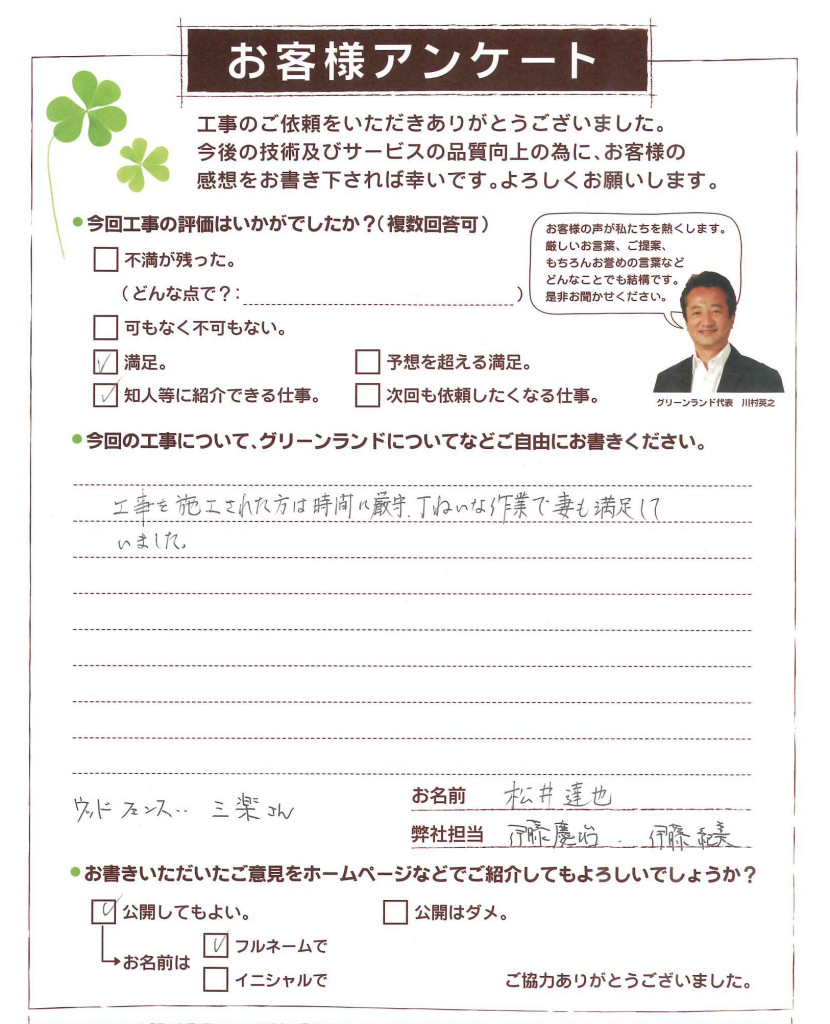 お客様アンケート
工事のご依頼をいただきありがとうございました。
今後の技術及びサービスの品質向上の為に、お客様の
感想をお書き下されば幸いです。よろしくお願いします。
今回工事の評価はいかがでしたか?(複数回答可)
不満が残った。
(どんな点で?: )
可もなく不可もない。
満足。
予想を超える満足。
知人等に紹介できる仕事。
次回も依頼したくなる仕事。
お客様の声が私たちを熱くします。
厳しいお言葉、ご提案、
もちろんお誉めの言葉など
どんなことでも結構です。
是非お聞かせください。
グリーンランド代表 川村英之
今回の工事について、グリーンランドについてなどご自由にお書きください。
工事を施工された方は時間に厳守、丁ねいな作業で妻も満足して
いました。
ウッドフェンス‥ 三楽さん
お名前 松井達也
弊社担当 伊藤慶治 . 伊藤紀美
お書きいただいたご意見をホームページなどでご紹介してもよろしいでしょうか?
公開してもよい。
公開はダメ。
お名前は
フルネームで
イニシャルで
ご協力ありがとうございました。